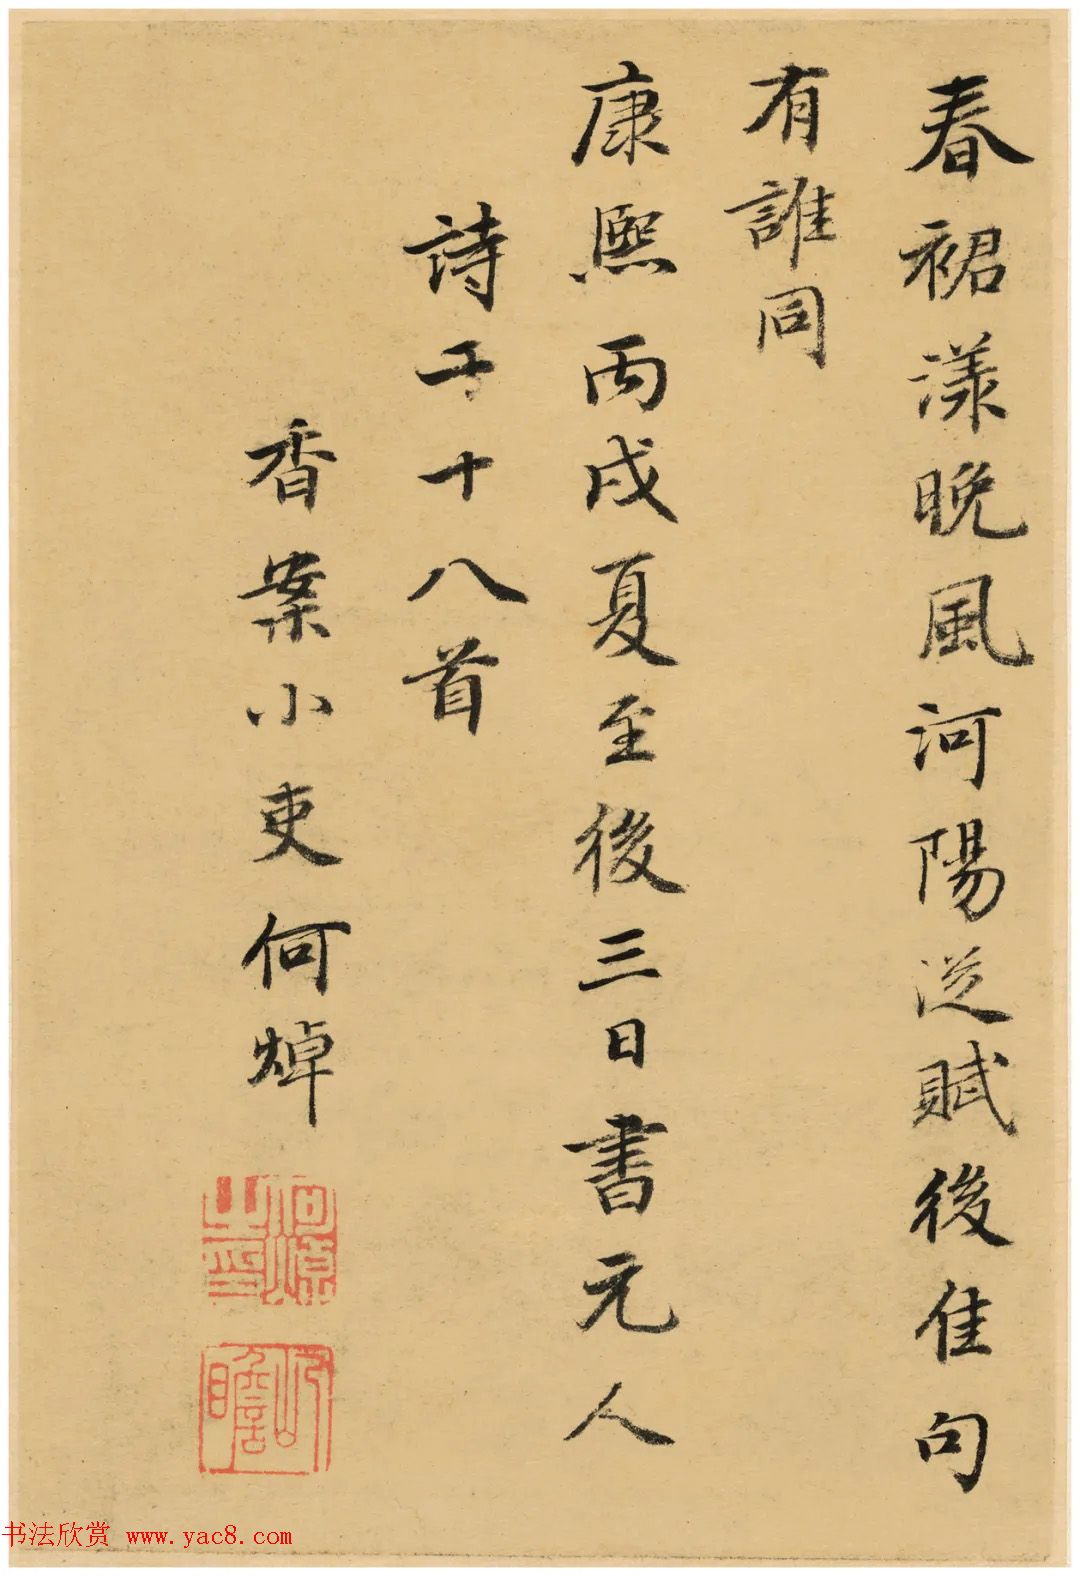 春裙漾晚風河陽從賦後佳句
有誰同
康熙丙戌夏至後三日書元人
詩十八首
香案小吏何焯
何焯之印
屺瞻
书法欣赏 www.yac8.com